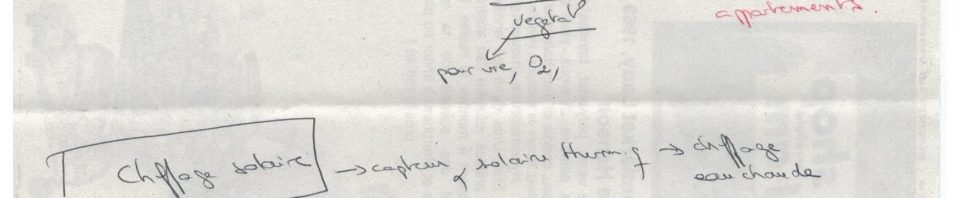 appartements.
végétal
pour vie, O2,
Chffage solaire → capteur solaire therm. → chffage
eau chaude